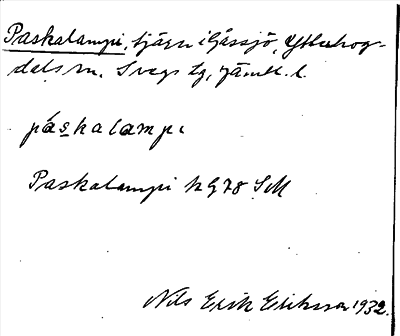 Paskalampi, tjärn i Gåssjö, Ytterhog-
dals sn. Svegs tg, Jämtl. l.
páskalampi
Paskalampi kg 78 SM
Nils Erik Eriksson 1932.